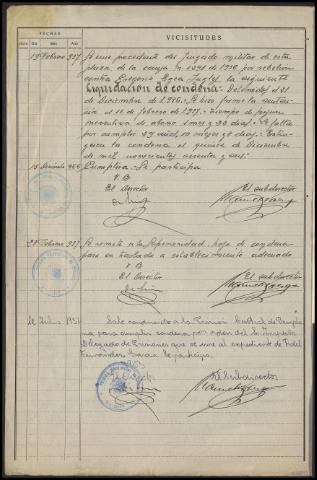 FECHAS
VICISITUDES
Hora Día Mes Año
13 Febrero 937 Se une procedente del Juzgado militar de esta
plaza de la causa nº 1898 de 1936 por rebelion
contra Gregorio Egea la siguiente
Liquidación de condena: Detenido el 31
de Diciembre de 1936. Se hizo firme la senten-
cia el 10 de febrero de 1937. Tiempo de prision
preventiva de abono 1 mes y dias. Le falta
por cumplir 29 años, 10 meses y dias. Extin-
guira la condena el quince de Diciembre
de mil novecientos sesenta y seis.
15 Diciembre 966 Cumplira. Se participa
V B
El Director El subdirector
28 Febrero 937 Se remite a la Superioridad hoja de condena
para su traslado a establecimiento adecuado
V B
El Director El subdirector
Julio 1937 Sale conducido a la Prision Central de Pamplo
na para cumplir condena por orden del Sr. Inspector
Delegado de Prisiones que se une al expediente de Fidel
Fernandez Garcia. Se participa
El Subdirector